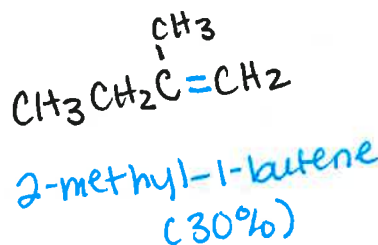 CH3
CH3CH2C=CH2
2-methyl-1-butene
(30%)